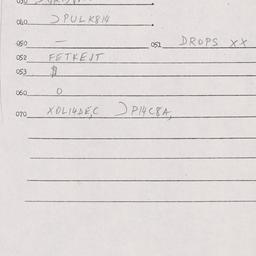 040 ƆPULK814
050 — 051 DROPS XX
052 FETKEJT
053 $
060 0
070 XOL14DEC ƆP14C8A,